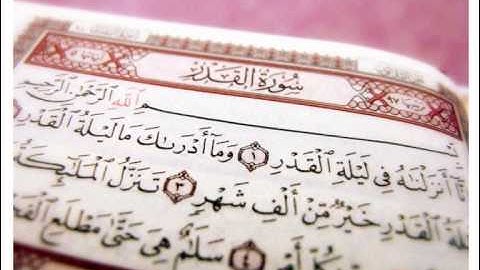 سُورَةُ الْقَدْرِ
بِسْمِ اللَّهِ الرَّحْمَٰنِ الرَّحِيمِ
إِنَّا أَنزَلْنَاهُ فِي لَيْلَةِ الْقَدْرِ ١ وَمَا أَدْرَاكَ مَا لَيْلَةُ الْقَدْرِ
لَيْلَةُ الْقَدْرِ خَيْرٌ مِّنْ أَلْفِ شَهْرٍ ٣ تَنَزَّلُ الْمَلَائِكَةُ
أَمْرٍ ٤ سَلَامٌ هِيَ حَتَّىٰ مَطْلَعِ